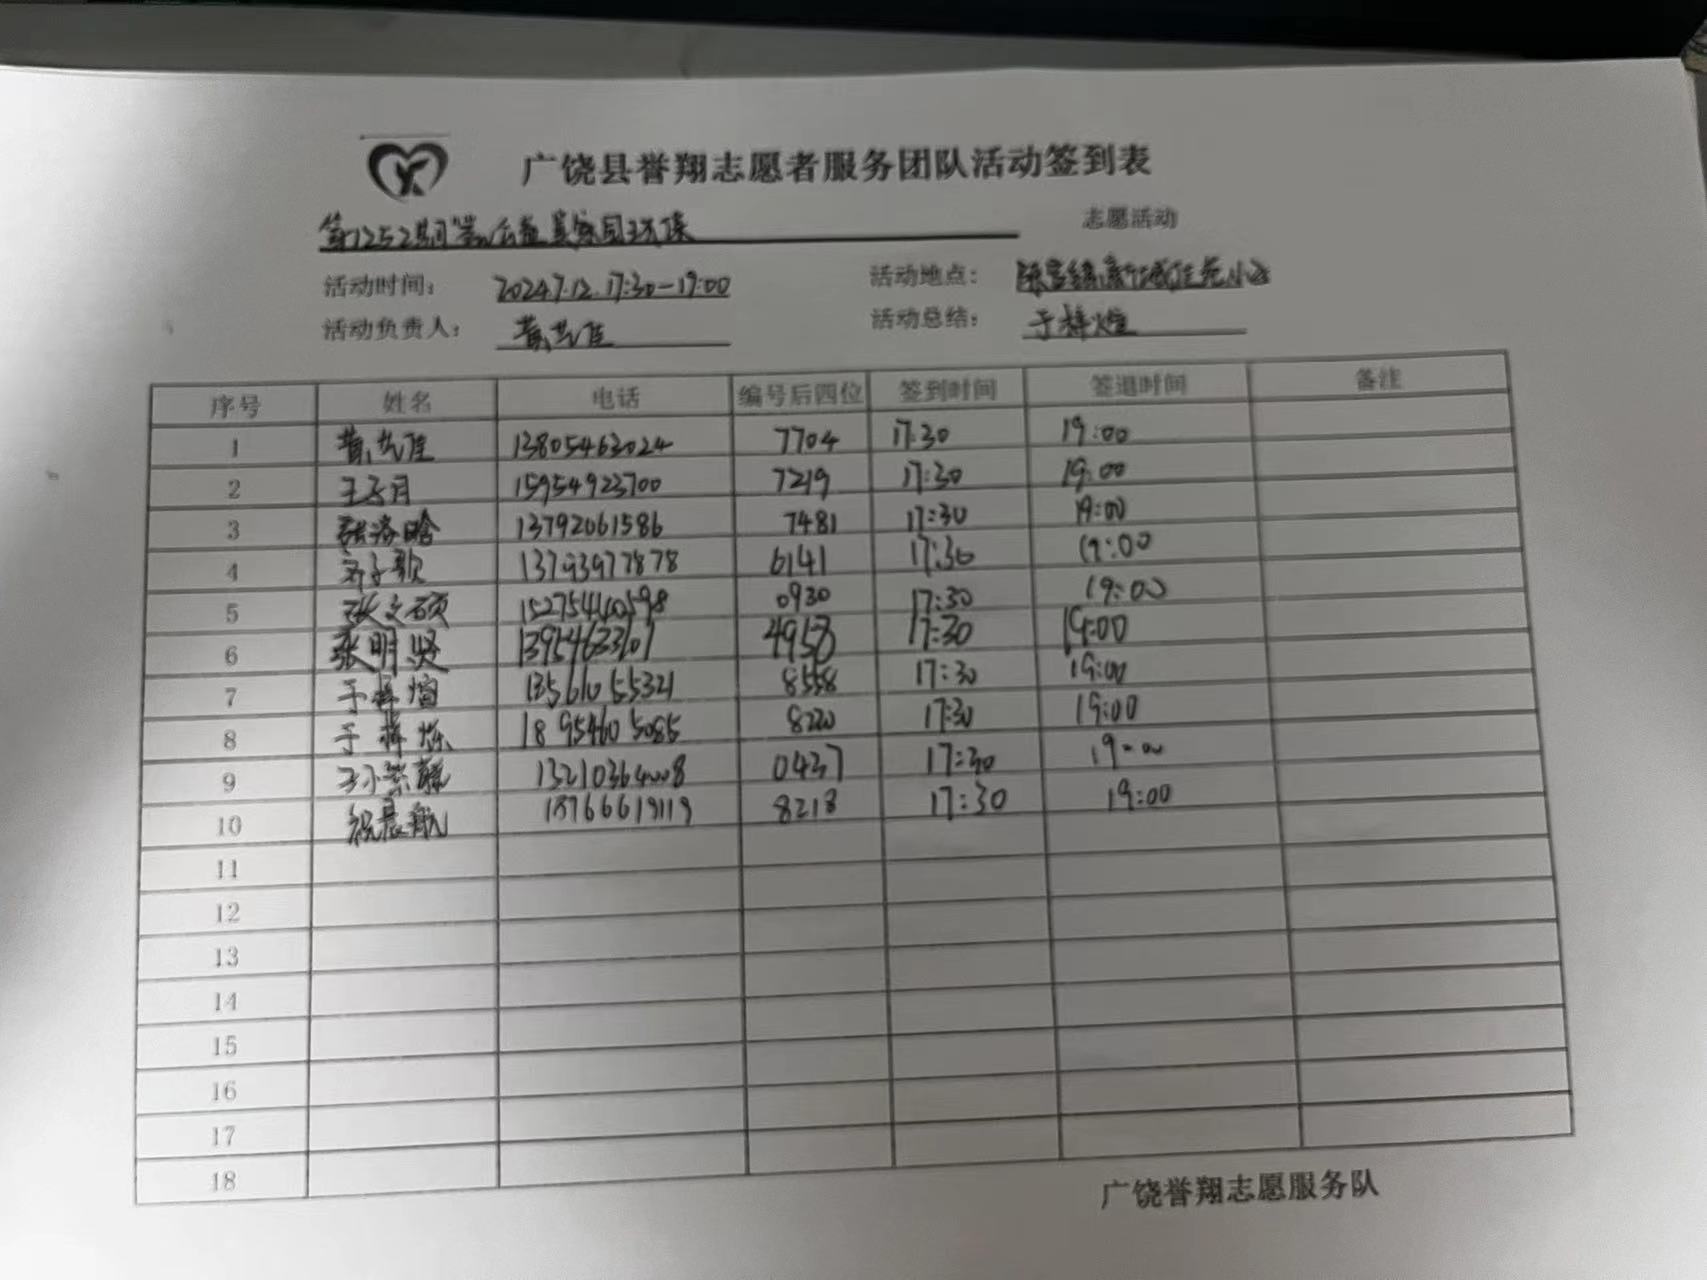 广饶县誉翔志愿者服务团队活动签到表
第1252期 公益 环保 志愿活动
活动时间： 2024.7.12.17:30-19:00 活动地点： 陈官镇 小区
活动负责人： 黄艺佳 活动总结： 于梓煊
序号 姓名 电话 编号后四位 签到时间 签退时间 备注
1 黄艺佳 13805463024 7704 17:30 19:00
2 15954923700 7219 17:30 19:00
3 张洛晗 13792061586 7481 17:30 19:00
4 子歌 13793977878 6141 17:30 19:00
5 张文硕 0930 17:30 19:00
6 张明贤 4958 17:30 19:00
7 于梓煊 13561055321 8558 17:30 19:00
8 于梓烁 18954605085 8220 17:30 19:00
9 13210364008 0437 17:30 19:00
10 祝晨航 18766619119 8218 17:30 19:00
11
12
13
14
15
16
17
18
广饶誉翔志愿服务队